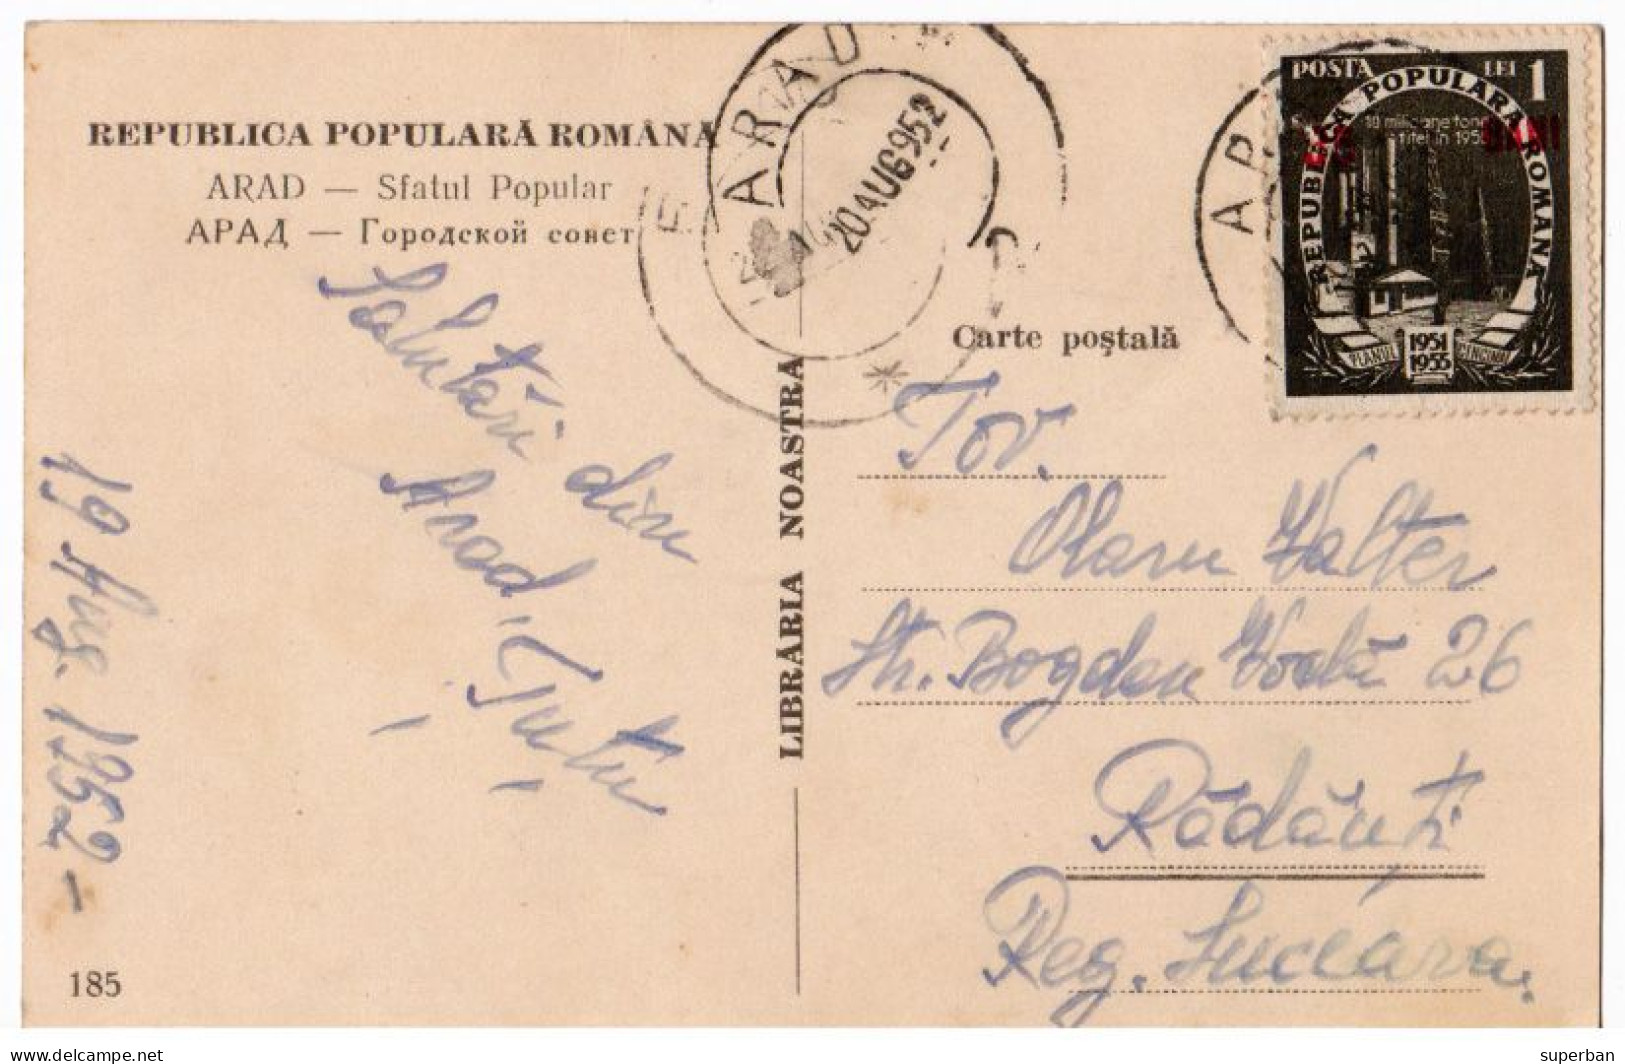 REPUBLICA POPULARĂ ROMÂNĂ
ARAD — Sfatul Popular
АРАД — Городской совет
Salutări din
Arad,
Tutu
19 Aug. 1952 –
185
LIBRĂRIA NOASTRA
ARAD
20 AUG 952
POSTA LEI 1
REPUBLICA POPULARA ROMANA
10 milioane tone
titei in 1955
BANI
PLANUL CINCINAL
1951
1955
AR
Carte poştală
Tov.
Olaru Walter
Str. Bogdan Vodă 26
Rădăuţi
Reg. Suceava.
www.delcampe.net
superban